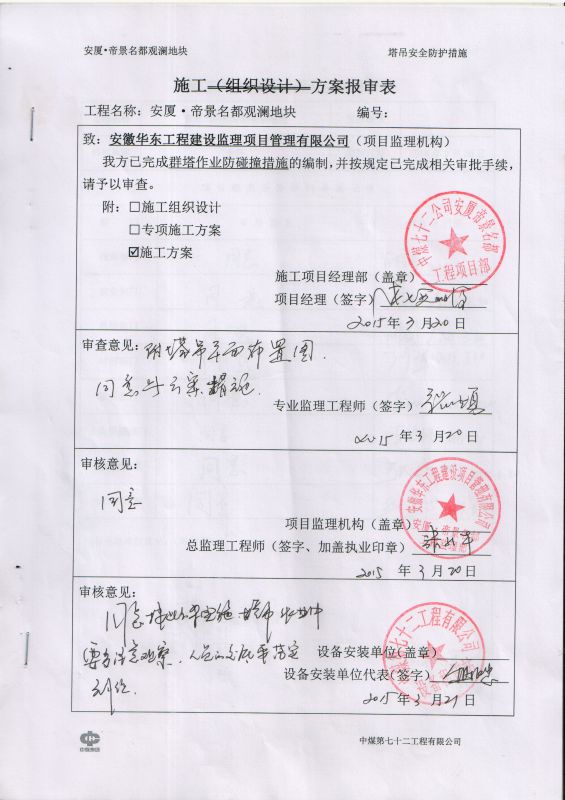 安厦•帝景名都观澜地块 塔吊安全防护措施
施工（组织设计）方案报审表
工程名称：安厦•帝景名都观澜地块 编号：
致：安徽华东工程建设监理项目管理有限公司（项目监理机构）
我方已完成群塔作业防碰撞措施的编制，并按规定已完成相关审批手续，
请予以审查。
附：□施工组织设计
□专项施工方案
☑施工方案
中煤七十二公司安厦帝景名都
工程项目部
施工项目经理部（盖章）
项目经理（签字）
2015年3月20日
审查意见：附塔吊平面布置图.
同意
专业监理工程师（签字）
2015年3月20日
审核意见：
同意
安徽华东工程建设项目管理有限公司
项目监理机构（盖章）
总监理工程师（签字、加盖执业印章）
2015年3月20日
审核意见：
七十二工程有限公司
设备安装单位（盖章）
设备安装单位代表（签字）
2015年3月21日
中煤第七十二工程有限公司